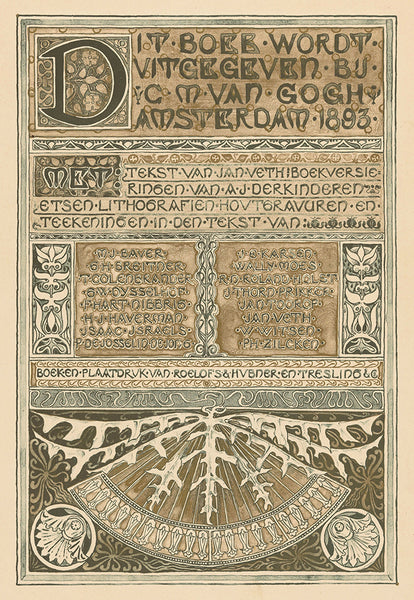 DIT·BOEK·WORDT·
UITGEGEVEN·BIJ
C·M·VAN·GOGH
AMSTERDAM·1893·
MET: TEKST·VAN·JAN·VETH:BOEKVERSIE
RINGEN·VAN·A·J·DERKINDEREN
ETSEN·LITHOGRAFIEN·HOUTGRAVUREN·EN
TEEKENINGEN·IN·DEN·TEKST·VAN:
M·BAUER·
G·H·BREITNER
T·COLENBRANDER
G·W·DYSSELHOF
P·J·HART·NIBBRIG
H·J·HAVERMAN
ISAAC·ISRAELS
P·DE·JOSSELIN·DE·JONG
J·E·KARSEN
WALLY·MOES
R·N·ROLAND·HOLST
J·THORN·PRIKKER
JAN·TOOROP
JAN·VETH
W·WITSEN
PH·ZILCKEN
BOEK·EN·PLAATDRUK·VAN·ROELOFS&HUBNER·EN·TRESLING&C